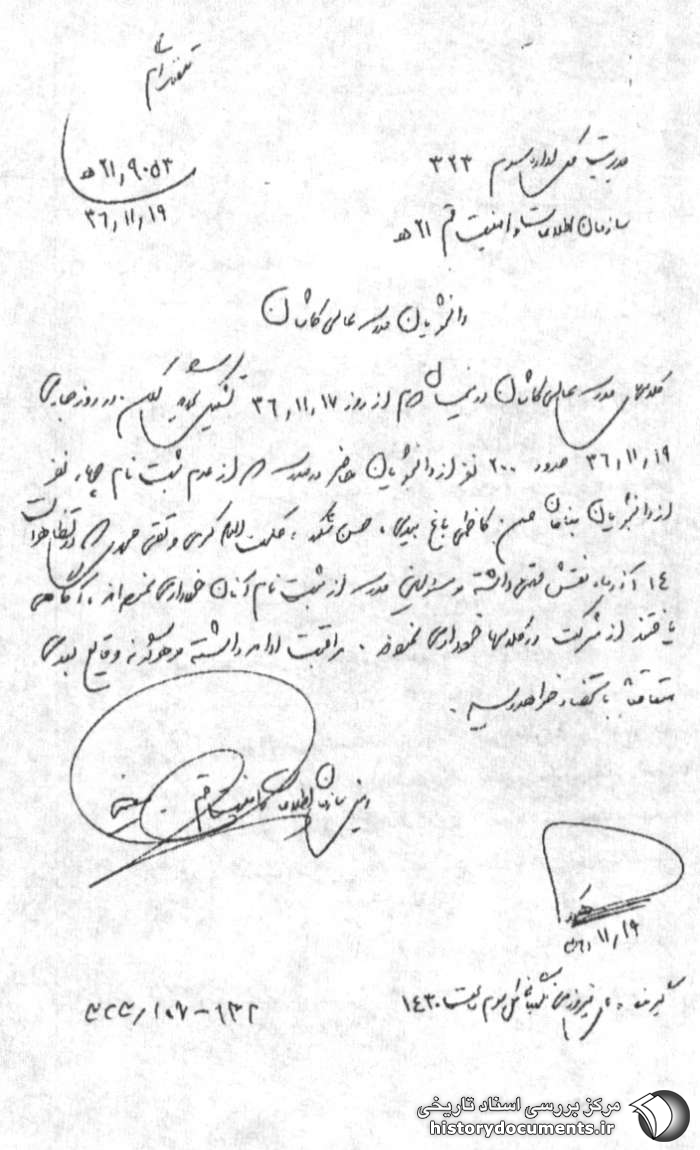 تلفنگرام
مدیریت کل اداره سوم ۳۲۳
۲۱/۹۰۵۳ ه
سازمان اطلاعات و امنیت قم ۲۱ ه
۳۶/۱۱/۱۹
دانشجویان مدرسه عالی کاشان
کلاسهای مدرسه عالی کاشان در نیمسال دوم از روز ۳۶/۱۱/۱۷ تشکیل گردیده لکن در روز جاری
۳۶/۱۱/۱۹ حدود ۲۰۰ نفر از دانشجویان حاضر در مدرسه از عدم ثبت نام چهار نفر
از دانشجویان بنامان حسن کاظمی باغ بیدی، حسن شکر، حکمت اله کرمی و تقی که در تظاهرات
۱۴ آذرماه نقش داشته و مسئولین مدرسه از ثبت نام آنان خودداری نموده اند، آگاهی
یافتند از شرکت در کلاسها خودداری نمودند. مراقبت ادامه داشته و هرگونه وقایع بعدی
متعاقباً باستحضار خواهد رسید.
رئیس سازمان اطلاعات و امنیت قم
۳۶/۱۱/۱۹
گیرنده: فیروزی اداره کل سوم ساعت ۱۴۳۰
مرکز بررسی اسناد تاریخی
historydocuments.ir